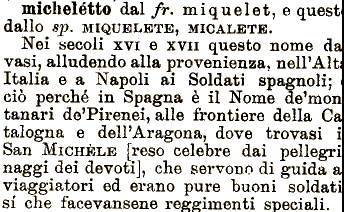 michelétto dal fr. miquelet, e quest
dallo sp. MIQUELETE, MICALETE.
Nei secoli XVI e XVII questo nome da
vasi, alludendo alla provenienza, nell'Alt
Italia e a Napoli ai Soldati spagnoli;
ciò perché in Spagna è il Nome de'mon
tanari de'Pirenei, alle frontiere della Ca
talogna e dell'Aragona, dove trovasi i
San MICHÈLE [reso celebre dai pellegri
naggi dei devoti], che servono di guida a
viaggiatori ed erano pure buoni soldati
sí che facevansene reggimenti speciali.